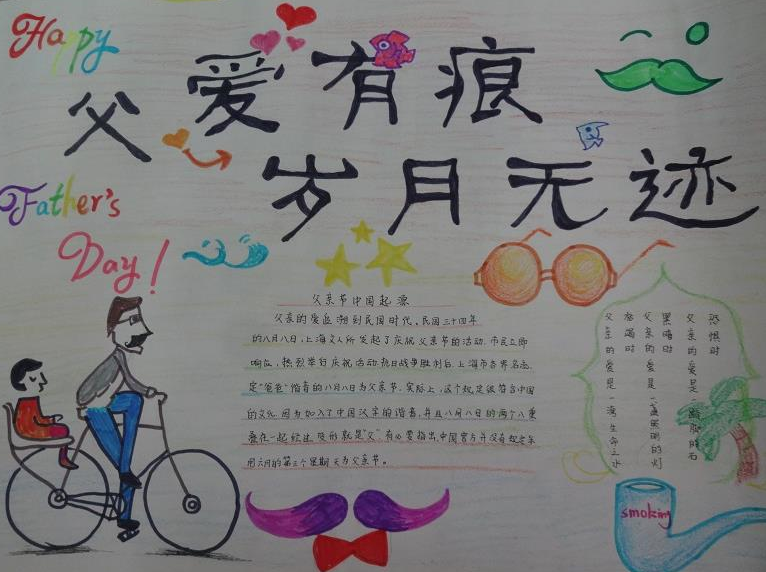 Happy
父爱有痕
岁月无迹
Father's
Day!
父亲节中国起源
父亲的爱追溯到民国时代。民国三十四年
的八月八日,上海文人所发起了庆祝父亲节的活动,市民立即
响应,热烈举行庆祝活动.抗日战争胜利后,上海市各界名流
定"爸爸"谐音的八月八日为父亲节.实际上,这个规定很符合中国
的文化.因为加入了中国父亲的谐音,并且八月八日的两个八重
叠在一起经过变形就是"父".有必要指出,中国官方并没有规定
用六月的第三个星期天为父亲节。
恐惧时
父亲的爱是一踏脚的石
黑暗时
父亲的爱是一盏照明的灯
枯竭时
父亲的爱是一湾生命之水
smoking